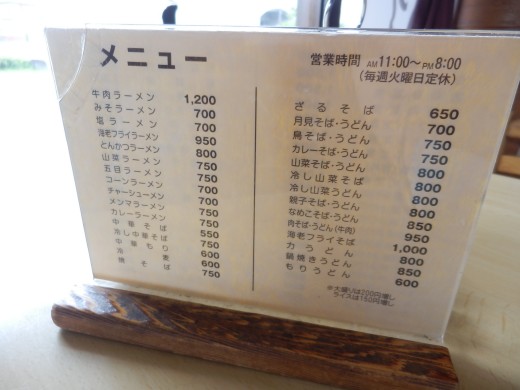 メニュー
営業時間 AM11:00～PM8:00
（毎週火曜日定休）
牛肉ラーメン 1,200
みそラーメン 700
塩ラーメン 700
海老フライラーメン 950
とんかつラーメン 800
山菜ラーメン 750
五目ラーメン 750
コーンラーメン 700
チャーシューメン 750
メンマラーメン 700
カレーラーメン 750
中華そば 550
冷し中華そば 750
中華もり 600
冷麦 600
焼そば 750
ざるそば 650
月見そば・うどん 700
鳥そば・うどん 750
カレーそば・うどん 750
山菜そば・うどん 800
冷し山菜そば 800
冷し山菜うどん 800
親子そば・うどん 800
なめこそば・うどん 850
肉そば・うどん（牛肉） 950
海老フライそば 1,000
力うどん 800
鍋焼きうどん 850
もりうどん 600
※大盛りは200円増し
ライスは150円増し